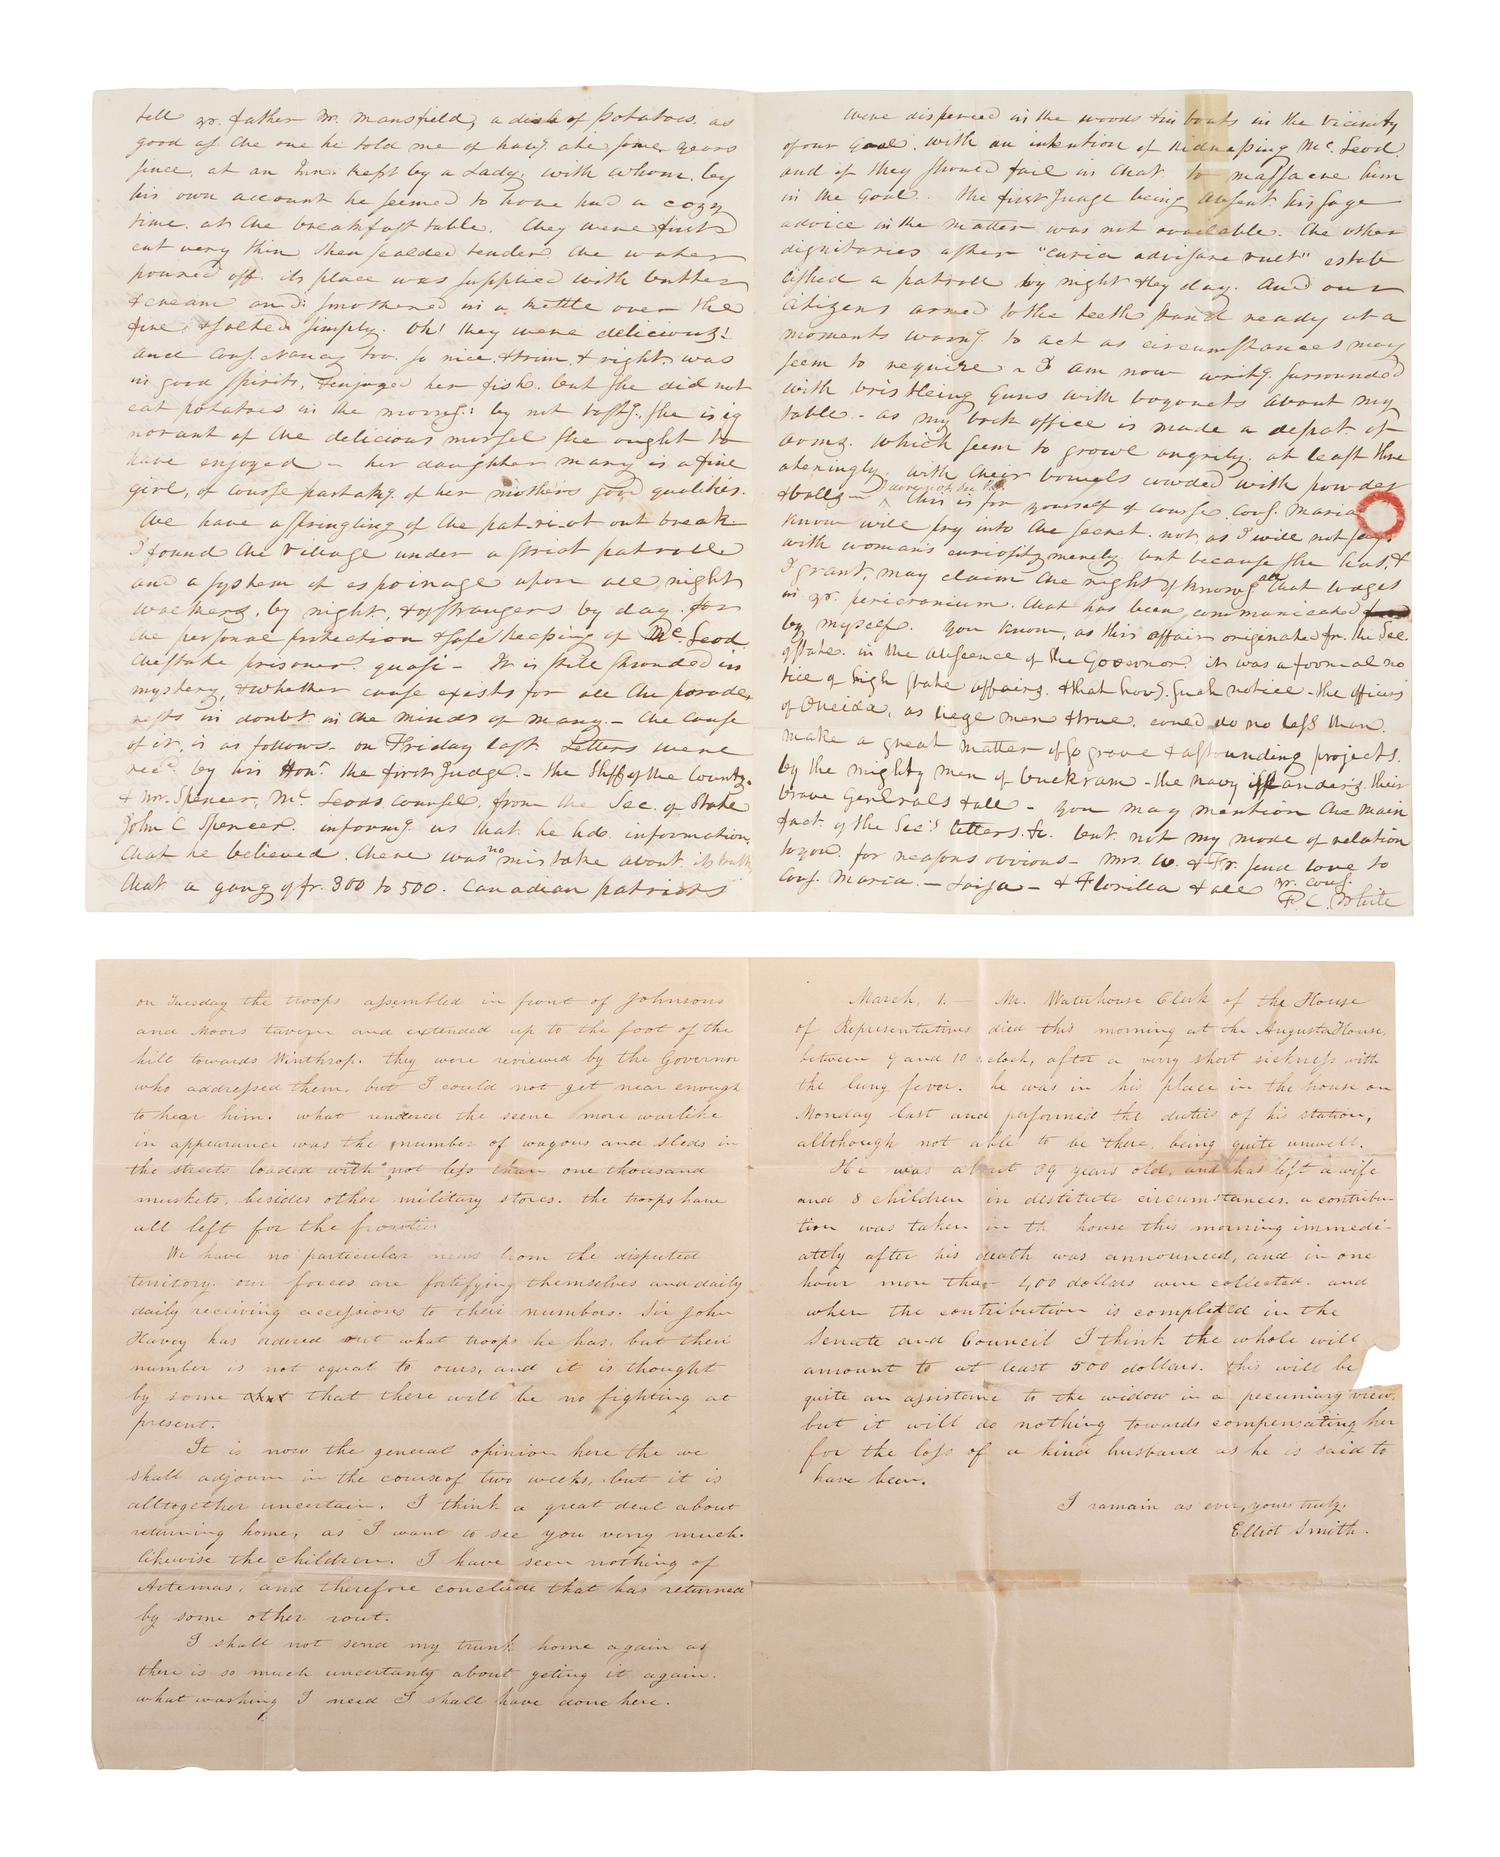 tell yr. father Mr. Mansfield, a dish of potatoes, as
good as the one he told me of havg ate some years
since, at an Inn kept by a Lady, with whom, by
his own account he seemed to have had a cozy
time, at the breakfast table. They were first
cut very thin then scalded tender, the water
poured off, its place was supplied with butter
& cream and smothered in a kettle over the
fire, & salted simply. Oh! they were delicious!
and Cous. Nancy too. so nice, & trim, & right. was
in good spirits, & enjoyed her fish. but she did not
eat potatoes in the morng: by not tastg. she is ig
norant of the delicious morsel she ought to
have enjoyed — her daughter Mary is a fine
girl, of course partakg. of her mother's good qualities.
We have a springling of the patriot out break
I found the village under a strict patroll
and a system of espoinage upon all night
walkers, by night, & of strangers by day. for
the personal protection & safe keeping of Mc. Leod
the state prisoner, quasi — It is still shrouded in
mystery, & whether cause exists for all the parade,
rests in doubt in the minds of many. — The cause
of it, is as follows — on Friday last. Letters were
recd. by his Honr. the first Judge. — the Shff of the County.
& Mr. Spencer, Mc. Leods counsel, from the Sec. of State
John C Spencer. informg us that he had information,
that he believed, there was no mistake about its truth,
that a gang of fr. 300 to 500. Canadian patriots
were dispersed in the woods & in boats in the vicinity
of our Goal. with an intention of kidnapping Mc. Leod.
and if they should fail in that, to massacre him
in the Goal. The first Judge being absent his sage
advice in the matter was not available. The other
dignitaries after "curia advisare vult" estab
lished a patroll by night & by day. And our
citizens armed to the teeth stand ready at a
moments warng. to act as circumstances may
seem to require — I am now writg. surrounded
with bristleing Guns with bayonets about my
table. — as my back office is made a depot of
arms. which seem to growl angrily. at least thre
ateningly, with their bowels crowded with powder
& balls — This is for yourself of course. Cous. Maria
know will pry into the secret. not, as I will not say,
with woman's curiosity merely but because she has, &
I grant, may claim the right of knowg all that lodges
in yr. pericranium. that has been communicated
by myself. You know, as this affair originated fr. the Sec.
of State. in the abscence of the Governor, it was a formal no
tice of high state affairs. & that havg. such notice — the officers
of Oneida, as liege men & true, could do no less than
make a great matter of so grave & astounding projects.
by the mighty men of buckram — the navy islanders, their
brave Generals & all — You may mention the main
fact of the Sec's letters. &c. but not my mode of relation
to you. for reasons obvious — Mrs. W. & Fr. send love to
Cous. Maria. — — & Florilla & all yr. cous.
F. C. White
on Tuesday the troops assembled in front of Johnsons
and Moors tavern and extended up to the foot of the
hill towards Winthrop. they were reviewed by the Governor
who addressed them. but I could not get near enough
to hear him. what rendered the scene more warlike
in appearance was the number of wagons and sleds in
the streets loaded with not less than one thousand
muskets, besides other military stores. the troops have
all left for the frontier
We have no particular news from the disputed
territory. our forces are fortifying themselves and daily
daily receiving accessions to their numbers. Sir John
Harvey has ordered out what troops he has, but their
number is not equal to ours, and it is thought
by some that there will be no fighting at
present.
It is now the general opinion here the we
shall adjourn in the course of two weeks, but it is
alltogether uncertain. I think a great deal about
returning home, as I want to see you very much.
likewise the children. I have seen nothing of
Artemas, and therefore conclude that has returned
by some other rout.
I shall not send my trunk home again as
there is so much uncertanty about geting it again.
what washing I need I shall have done here.
March, 1. — Mr. Waterhouse Clerk of the House
of Representatives died this morning at the Augusta House,
between 9 and 10 oclock, after a very short sickness with
the lung fever. he was in his place in the house on
Monday last and performed the duties of his station,
allthough not able to be there, being quite unwell.
He was about 39 years old, and has left a wife
and 8 children in destitute circumstances. a contribu-
tion was taken in th house this morning immedi-
ately after his death was announced, and in one
hour more than 400 dollars were collected. and
when the contribution is completed in the
Senate and Council I think the whole will
amount to at least 500 dollars. this will be
quite an assistance to the widow in a pecuniary view.
but it will do nothing towards compensating her
for the loss of a kind husband as he is said to
have been.
I remain as ever, yours truly,
Elliot Smith.